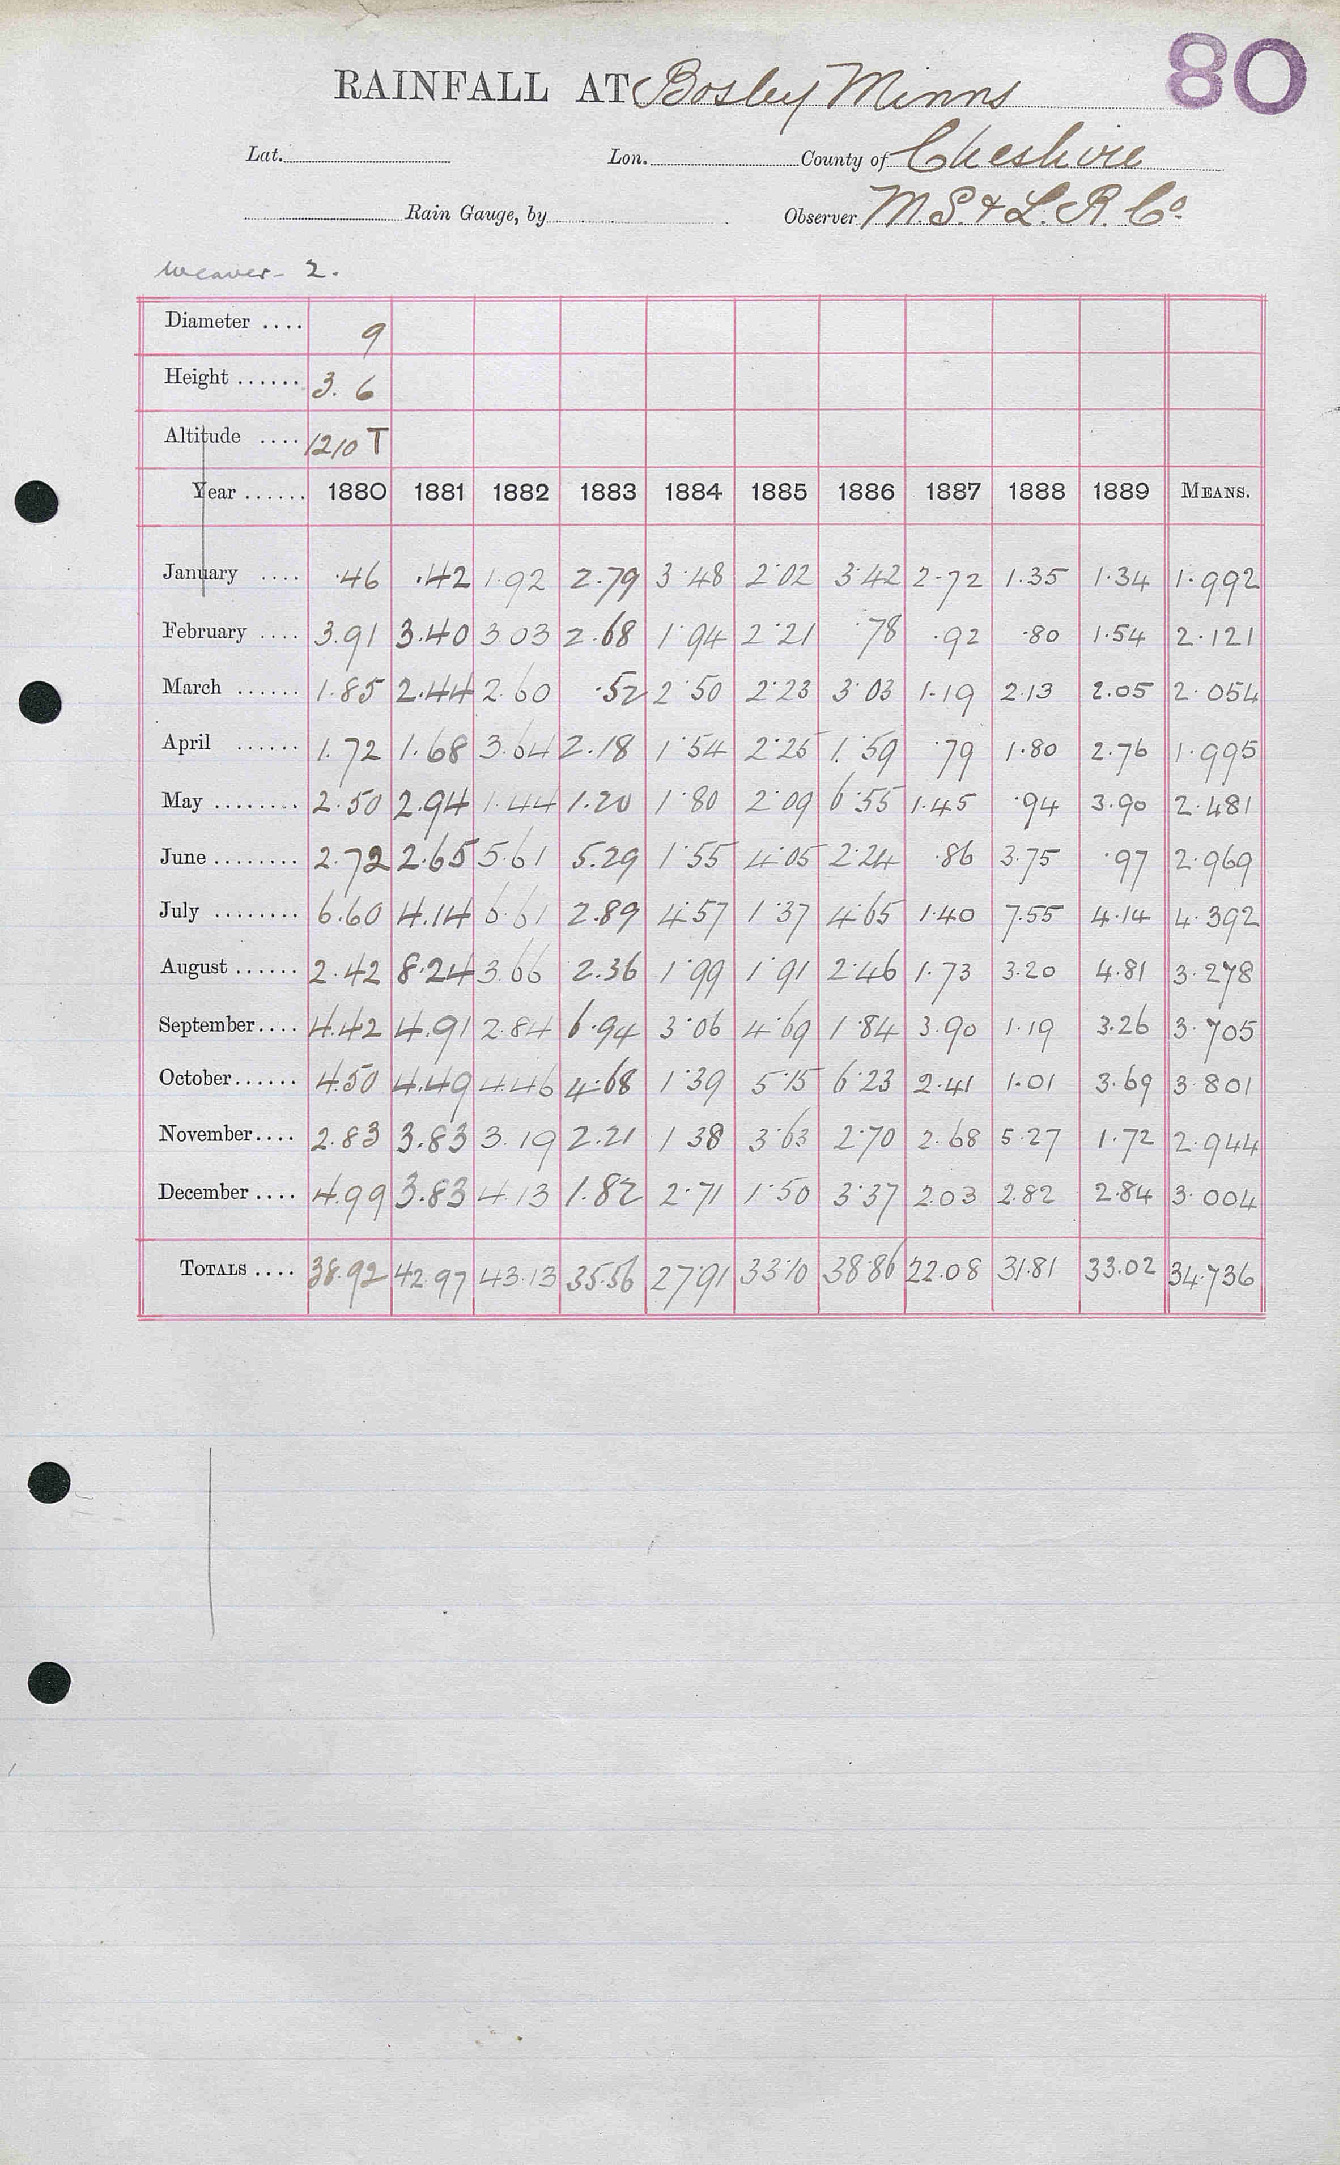 80
RAINFALL AT Bosley Minns
Lat. Lon. County of Cheshire
Rain Gauge, by Observer M. S. & L. R. Co.
Weaver - 2.
Diameter .... 9
Height ...... 3. 6
Altitude .... 1210 T
Year ...... 1880 1881 1882 1883 1884 1885 1886 1887 1888 1889 MEANS.
January .... .46 .42 1.92 2.79 3.48 2.02 3.42 2.72 1.35 1.34 1.992
February .... 3.91 3.40 3 03 2.68 1.94 2.21 .78 .92 .80 1.54 2.121
March ...... 1.85 2.44 2.60 .52 2.50 2.23 3.03 1.19 2.13 2.05 2.054
April ...... 1.72 1.68 3.64 2.18 1.54 2.25 1.59 .79 1.80 2.76 1.995
May ........ 2.50 2.94 1.44 1.20 1.80 2.09 6.55 1.45 .94 3.90 2.481
June ........ 2.72 2.65 5.61 5.29 1.55 4.05 2.24 .86 3.75 .97 2.969
July ........ 6.60 4.14 6.61 2.89 4.57 1.37 4.65 1.40 7.55 4.14 4.392
August ...... 2.42 8.24 3.66 2.36 1.99 1.91 2.46 1.73 3.20 4.81 3.278
September.... 4.42 4.91 2.84 6.94 3.06 4.69 1.84 3.90 1.19 3.26 3.705
October...... 4.50 4.49 4.46 4.68 1.39 5.15 6.23 2.41 1.01 3.69 3.801
November.... 2.83 3.83 3.19 2.21 1 38 3.63 2.70 2.68 5.27 1.72 2.944
December .... 4.99 3.83 4.13 1.82 2.71 1.50 3.37 2.03 2.82 2.84 3.004
TOTALS .... 38.92 42.97 43.13 35.56 27.91 33.10 38.86 22.08 31.81 33.02 34.736